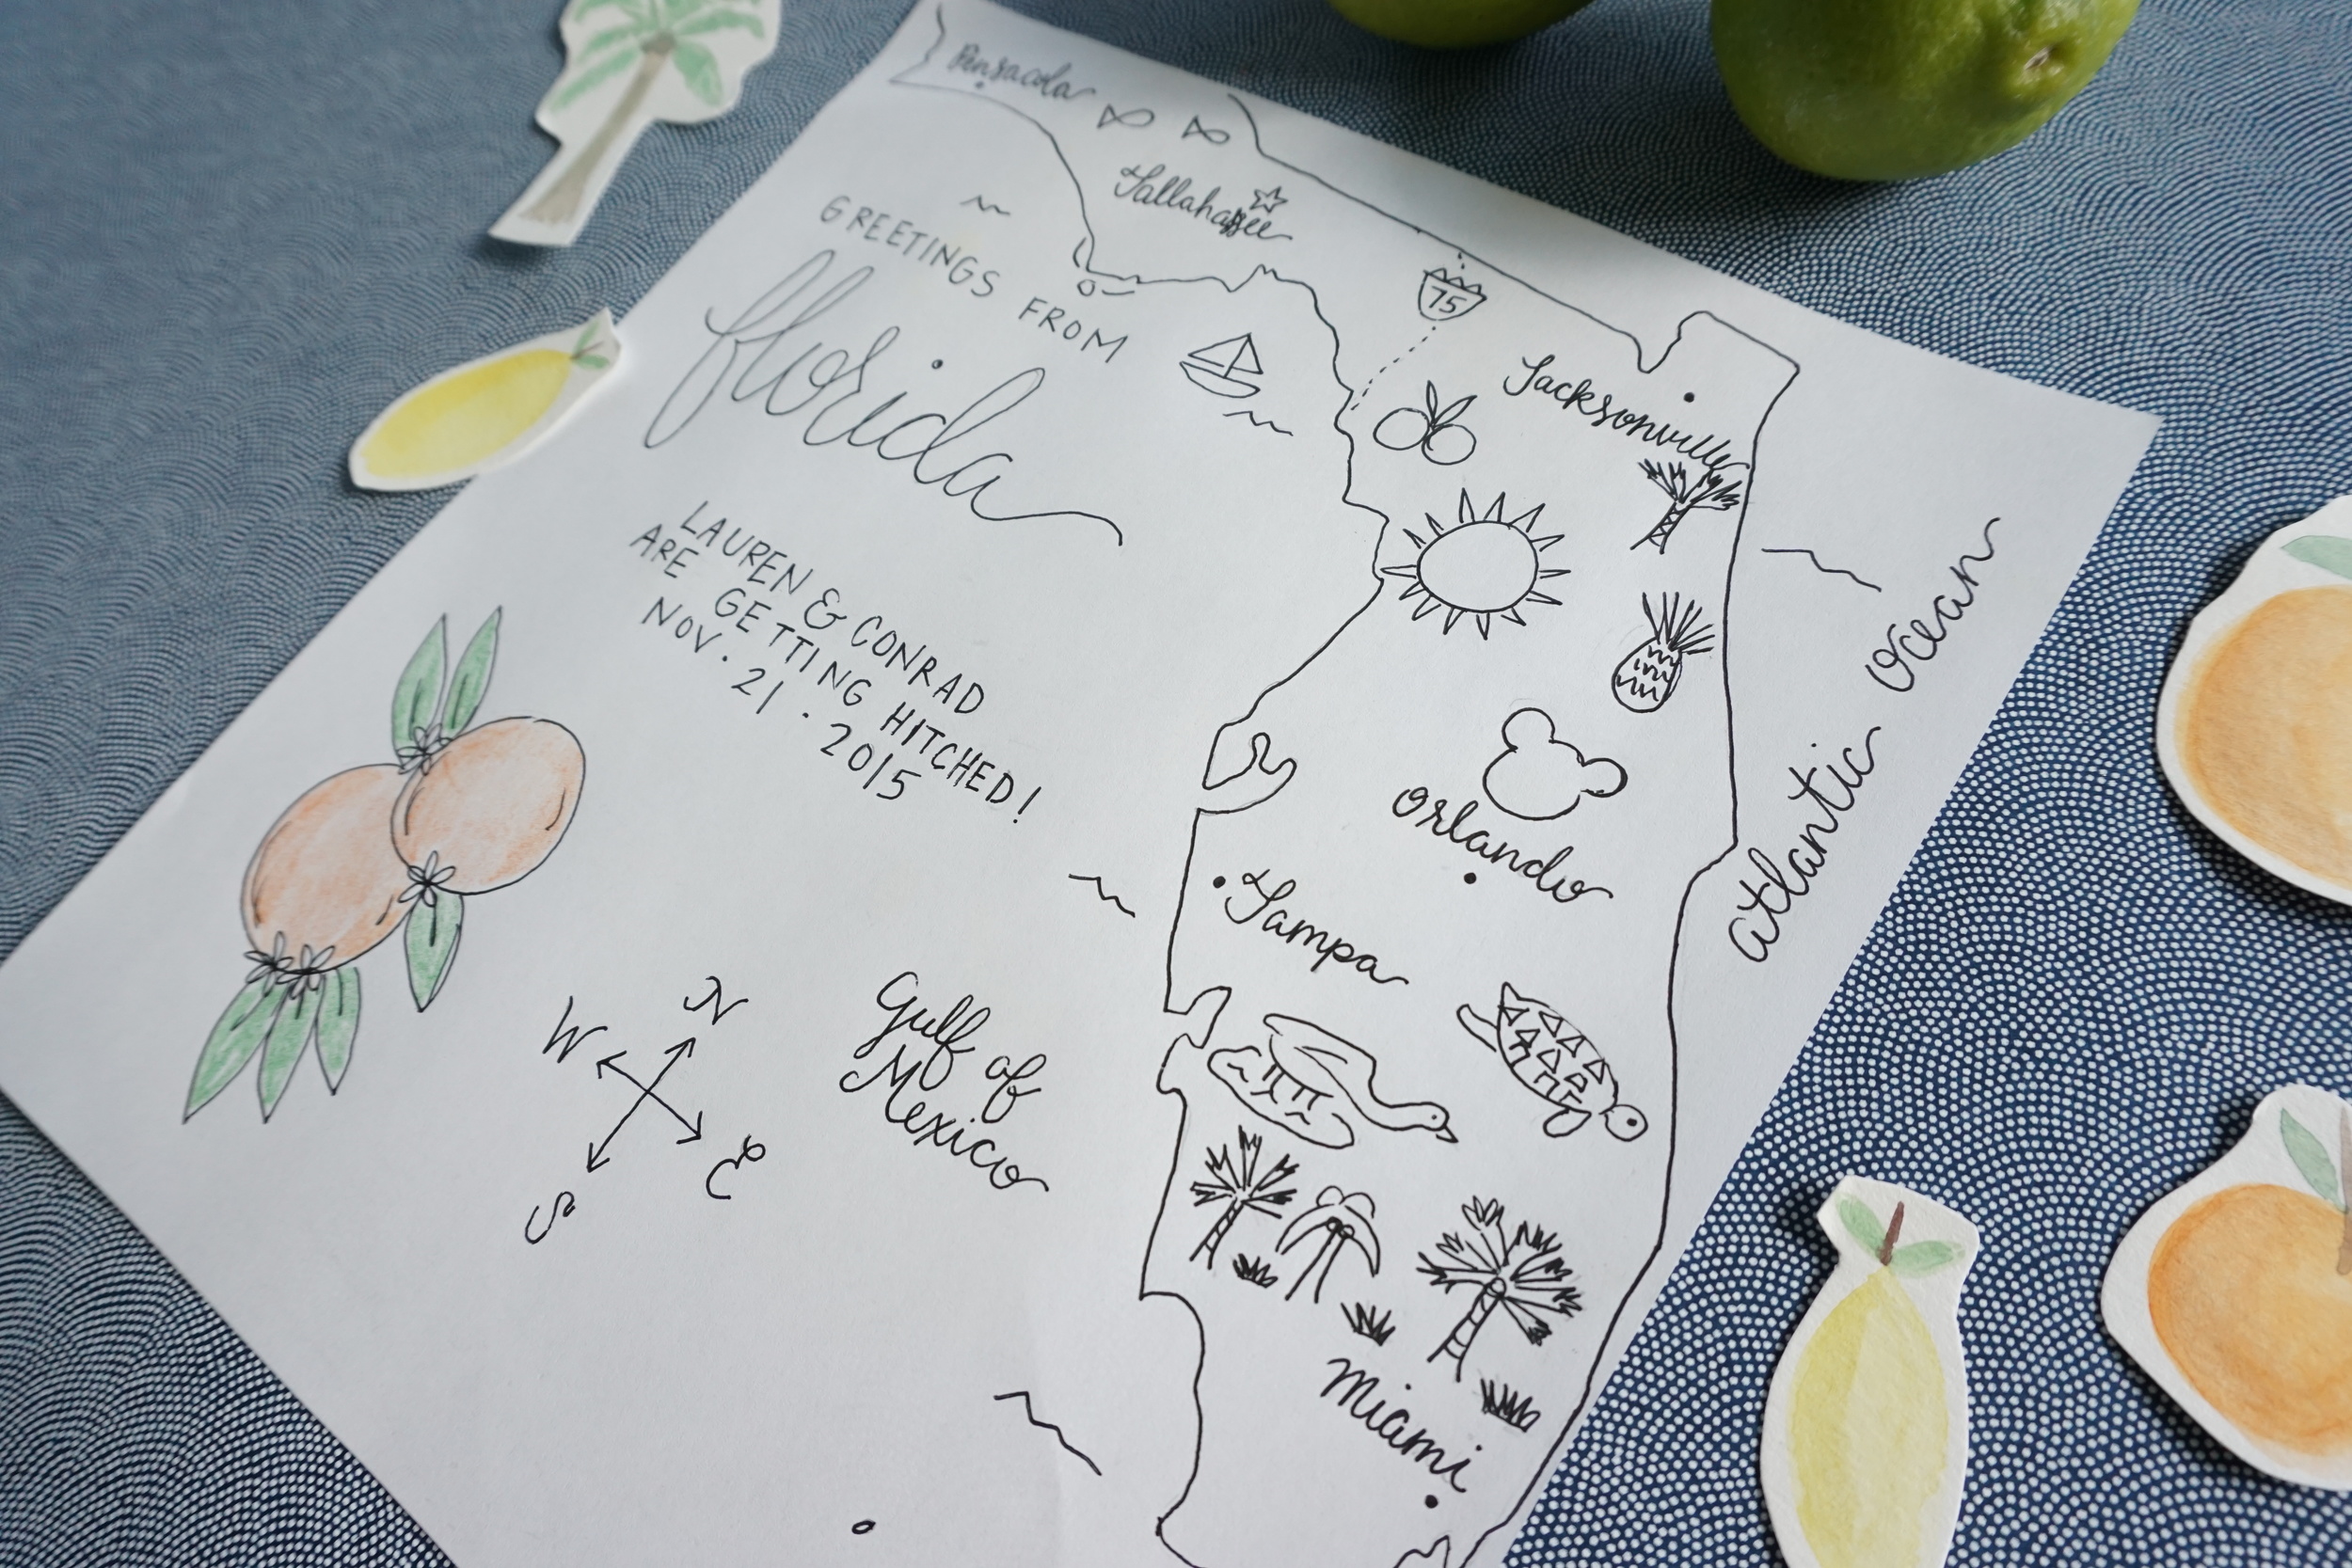 Pensacola
Tallahassee
GREETINGS FROM
florida
75
Jacksonville
LAUREN & CONRAD
ARE GETTING HITCHED!
NOV. 21. 2015
Orlando
Tampa
atlantic ocean
N
W
E
S
Gulf of
Mexico
Miami